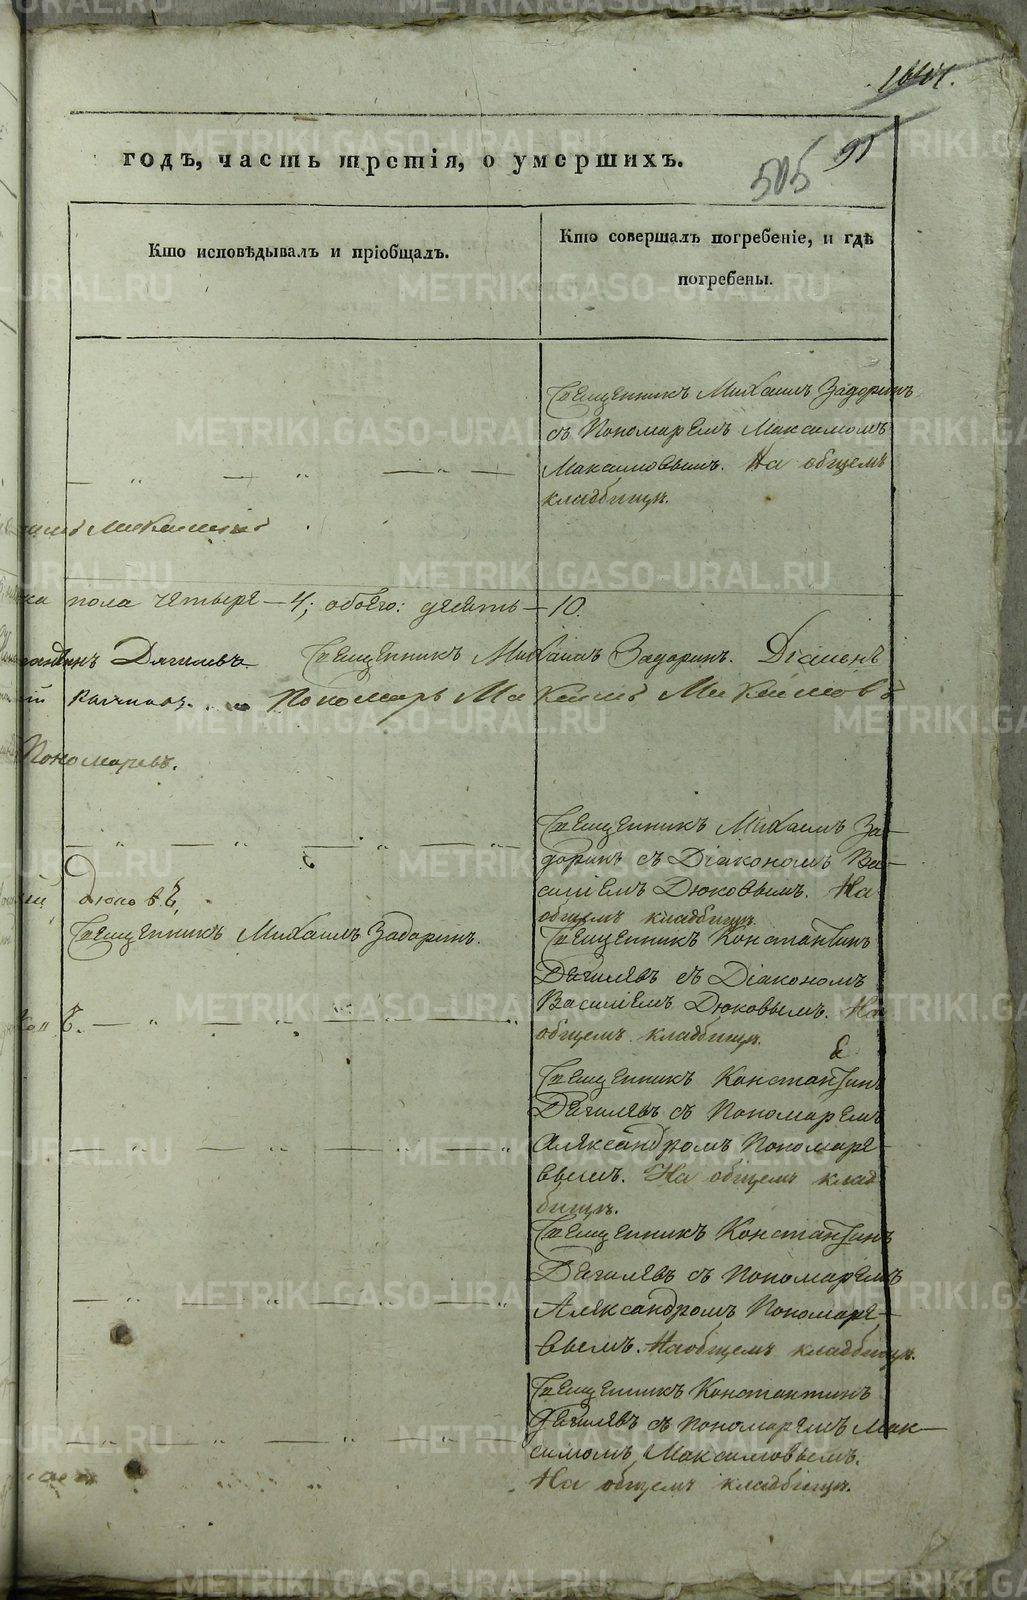 годъ, часть третія, о умершихъ.
505
Кто исповѣдывалъ и пріобщалъ.
Кто совершалъ погребеніе, и гдѣ
погребены.
Священникъ Михаилъ Задоринъ
съ Пономаремъ Максимомъ
Максимовымъ. На общемъ
кладбищѣ.
пола четыре — 4; обоего: десять — 10.
Священникъ Михаилъ Задоринъ.
Пономарь Максимъ Максимовъ
Пономаревъ.
Священникъ Михаилъ За-
доринъ съ Діакономъ Ва-
силіемъ Дюковымъ. На
общемъ кладбищѣ.
Дюковъ
Священникъ Михаилъ Задоринъ.
Священникъ Константинъ
Дягилевъ съ Діакономъ
Василіемъ Дюковымъ. На
общемъ кладбищѣ.
Священникъ Константинъ
Дягилевъ съ Пономаремъ
Александромъ Пономаре-
вымъ. На общемъ клад
бищѣ.
Священникъ Константинъ
Дягилевъ съ Пономаремъ
Александромъ Пономаре-
вымъ. На общемъ кладбищѣ.
Священникъ Константинъ
Дягилевъ съ Пономаремъ Мак-
симомъ Максимовымъ.
На общемъ кладбищѣ.
METRIKI.GASO-URAL.RU